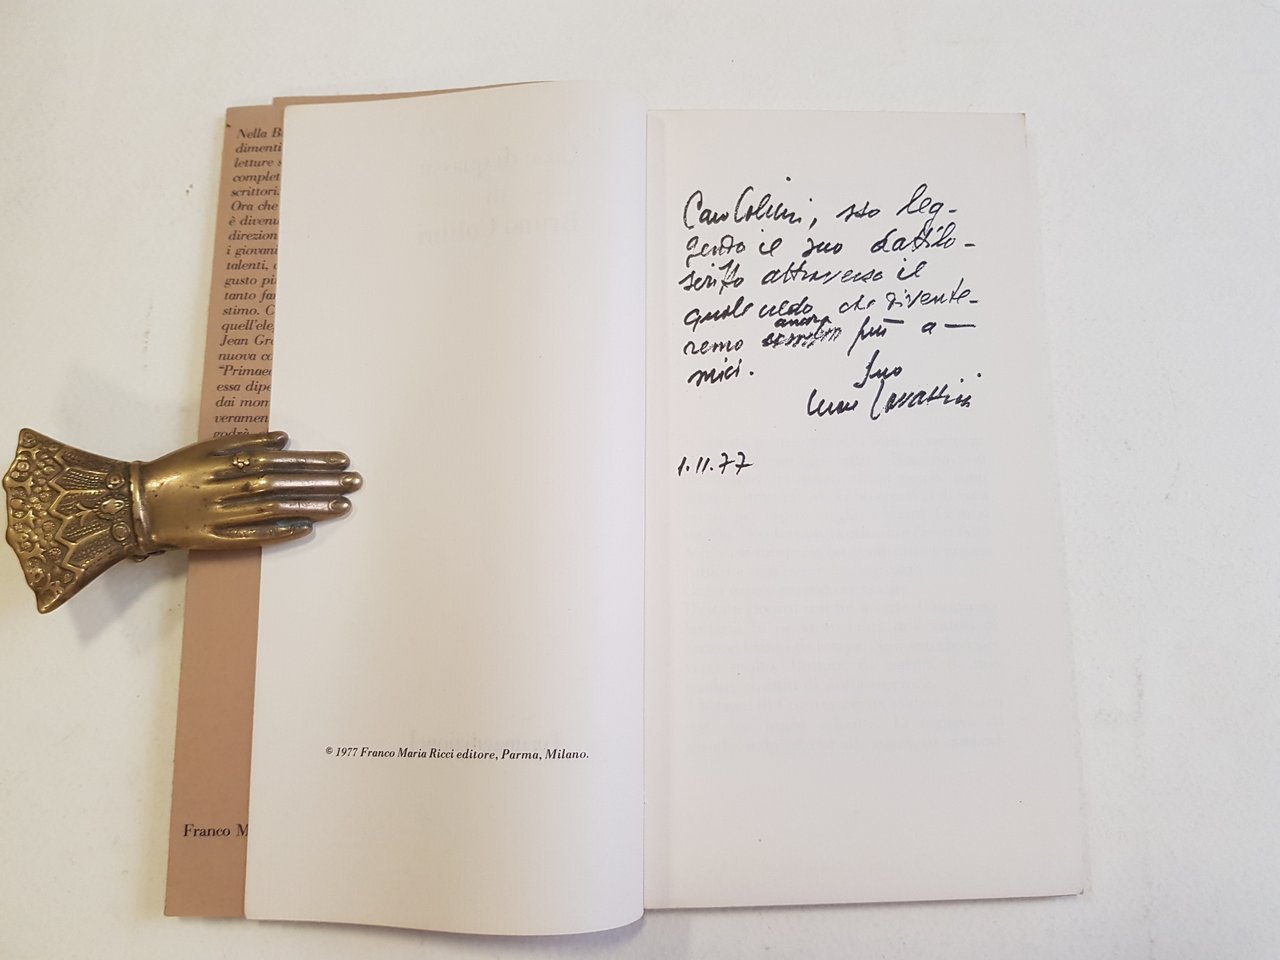 Nella B
dimenti
letture s
complet
scrittori.
Ora che
è divenu
direzion
i giovani
talenti, c
gusto pi
tanto fa
stimo. C
quell'ele
Jean Gr
nuova co
"Primaec
essa dipe
dai mom
veramen
godrà
Franco M
© 1977 Franco Maria Ricci editore, Parma, Milano.
Caro Colliri, sto leg-
gendo il suo dattilo-
scritto attraverso il
quale credo che divente-
remo ancora più a-
mici.
Suo
Cesare Zavattini
1.11.77